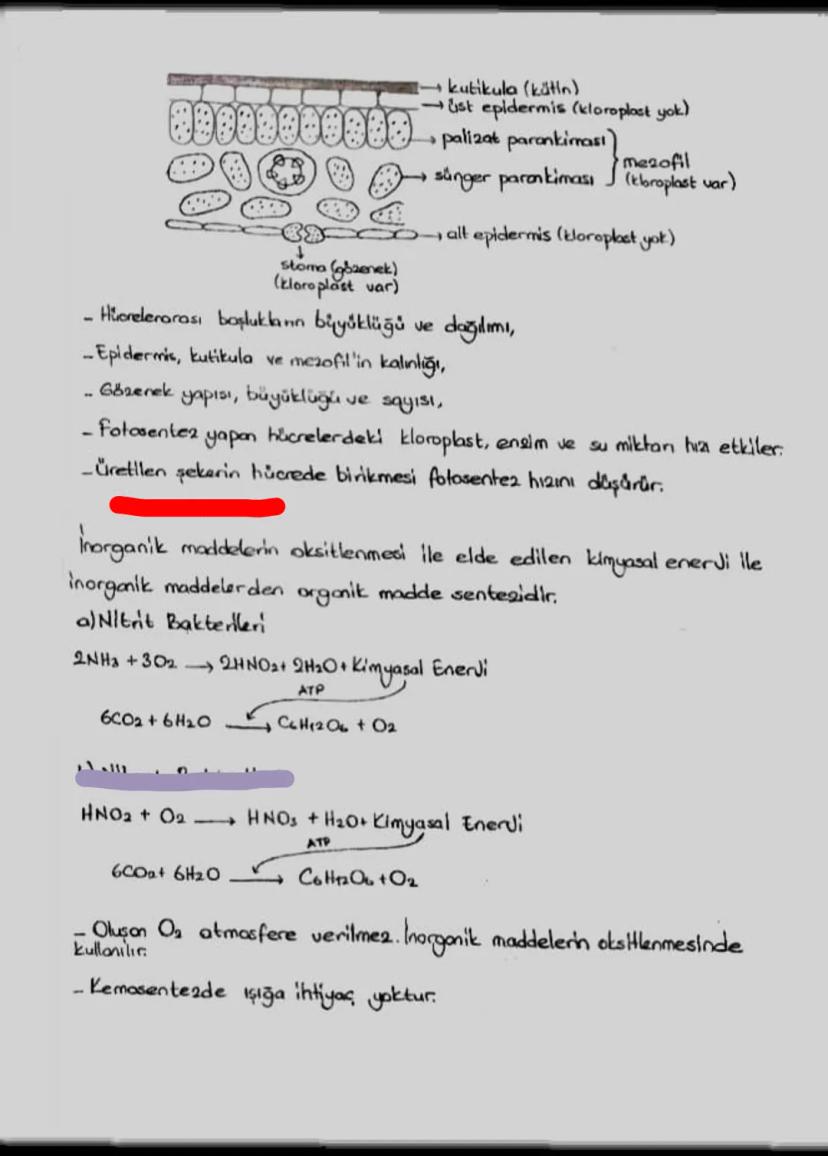 kutikula (kütin)
üst epidermis (kloroplast yok)
palizat parankiması
mezofil
(kloroplast var)
sünger parankiması
alt epidermis (kloroplast yok)
stoma (gözenek)
(kloroplast var)
- Hücrelerarası boşlukların büyüklüğü ve dağılımı,
- Epidermis, kutikula ve mezofil'in kalınlığı,
- Gözenek yapısı, büyüklüğü ve sayısı,
- Fotosentez yapan hücrelerdeki kloroplast, enzim ve su miktarı hızı etkiler.
- Üretilen şekerin hücrede birikmesi fotosentez hızını düşürür.
İnorganik maddelerin oksitlenmesi ile elde edilen kimyasal enerji ile
inorganik maddelerden organik madde sentezidir.
a) Nitrit Bakterileri
2NH3 + 3O2 → 2HNO2 + 2H2O + Kimyasal Enerji
ATP
6CO2 + 6H2O → C6H12O6 + O2
HNO2 + O2 → HNO3 + H2O + Kimyasal Enerji
ATP
6CO2 + 6H2O → C6H12O6 + O2
- Oluşan O2 atmosfere verilmez. İnorganik maddelerin oksitlenmesinde
kullanılır.
- Kemosentezde ışığa ihtiyaç yoktur.